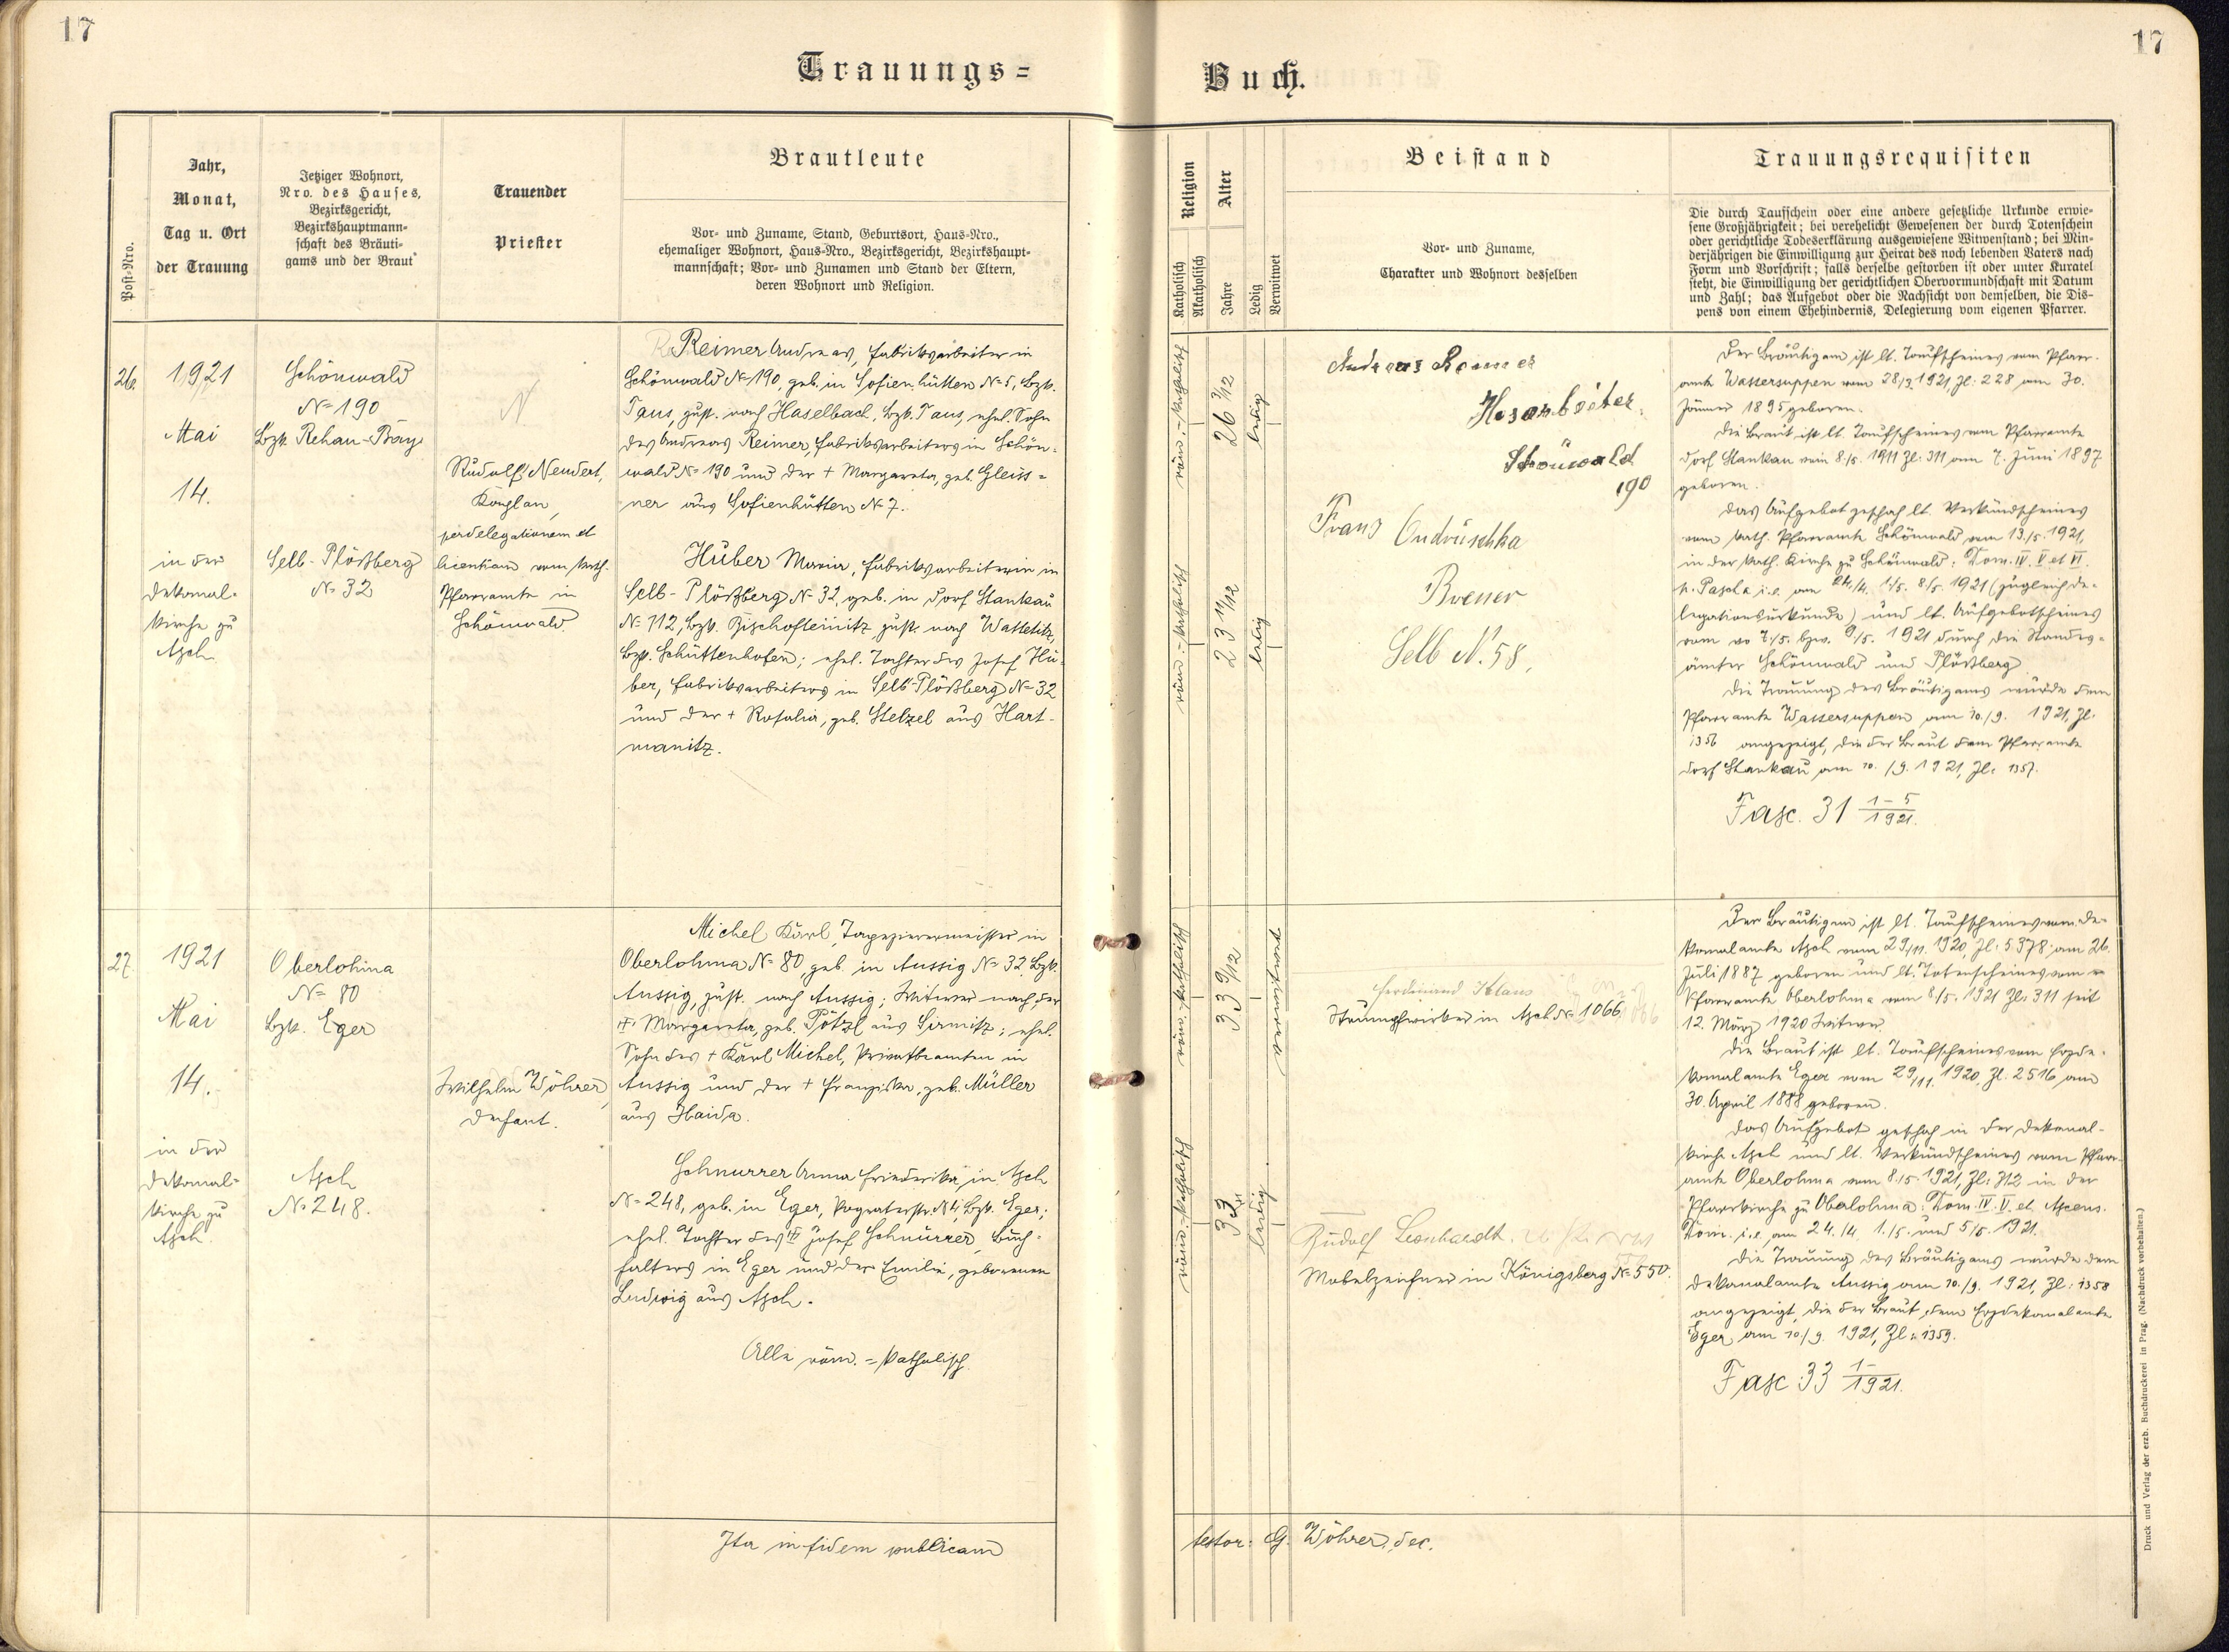 17
17
Trauungs=
Buch.
Post-Nro.
Jahr,
Monat,
Tag u. Ort
der Trauung
Jetziger Wohnort,
Nro. des Hauses,
Bezirksgericht,
Bezirkshauptmann-
schaft des Bräuti-
gams und der Braut
Trauender
Priester
Brautleute
Vor- und Zuname, Stand, Geburtsort, Haus-Nro.,
ehemaliger Wohnort, Haus-Nro., Bezirksgericht, Bezirkshaupt-
mannschaft; Vor- und Zunamen und Stand der Eltern,
deren Wohnort und Religion.
Religion
Katholisch
Akatholisch
Alter
Jahre
Ledig
Verwitwet
Beistand
Vor- und Zuname,
Charakter und Wohnort desselben
Trauungsrequisiten
Die durch Taufschein oder eine andere gesetzliche Urkunde erwie-
sene Großjährigkeit; bei verehelicht Gewesenen der durch Totenschein
oder gerichtliche Todeserklärung ausgewiesene Witwenstand; bei Min-
derjährigen die Einwilligung zur Heirat des noch lebenden Vaters nach
Form und Vorschrift; falls derselbe gestorben ist oder unter Kuratel
steht, die Einwilligung der gerichtlichen Obervormundschaft mit Datum
und Zahl; das Aufgebot oder die Nachsicht von demselben, die Dis-
pens von einem Ehehindernis, Delegierung vom eigenen Pfarrer.
26
1921
Mai
14.
in der
Dekanal-
kirche zu
Asch
Schönwald
No 190
Bzk. Rehau-Bay
Selb-Plößberg
No 32
Rudolf Neudert,
perdelegationem et
licentiam vom kath.
Pfarramte in
Schönwald
Reimer Andreas, Fabriksarbeiter in
Schönwald No 190, geb. in Sofienhütten No 5, Bzk.
Taus, zust. nach Haselbach, Bzk. Taus, ehel. Sohn
des Andreas Reimer, Fabriksarbeiters in Schön-
wald No 190 und der + Margareta, geb. Gleiss-
ner aus Sofienhütten No 7.
Huber Maria, Fabriksarbeiterin in
Selb-Plößberg No 32, geb. in Dorf Stankau
No 112, Bzk. Bischofteinitz zust. nach Watetitz,
Bzk. Schüttenhofen; ehel. Tochter des Josef Hu-
ber, Fabriksarbeiters in Selb-Plößberg No 32
und der + Rosalia, geb. Stelzel aus Hart-
manitz.
röm.-katholisch
26 3/12
ledig
röm.-katholisch
23 11/12
ledig
Andreas Reimer
Schönwald
190
Franz Ondruschka
Brenner
Selb No. 58.
Der Bräutigam ist lt. Taufscheines vom Pfarr-
amte Wassersuppen vom 28/3. 1921, Zl: 228 am 30.
Jänner 1895 geboren.
Die Braut ist lt. Taufscheines vom Pfarramte
Dorf Stankau vom 8./5. 1911 Zl: 311 am 7. Juni 1897
geboren.
Das Aufgebot geschah lt. Verkündscheines
vom kath. Pfarramte Schönwald vom 13./5. 1921,
in der kath. Kirche zu Schönwald: Dom. IV. V et VI.
p. Pascha i.e. am 24./4. 1./5. 8./5. 1921 (zugleich De-
legationsurkunde) und lt. Aufgebotscheines
vom 7./5. bzw. 9/5. 1921 durch die Standes-
ämter Schönwald und Plößberg
Die Trauung des Bräutigams wurde dem
Pfarramte Wassersuppen am 10./9. 1921, Zl.
1356 angezeigt, die der Braut dem Pfarramte
Dorf Stankau am 10./9. 1921, Zl: 1357.
Fasc. 31 1-5/1921.
27
1921
Mai
14.
in der
Dekanal-
kirche zu
Asch
Oberlohma
No 80
Bzk. Eger
Asch
No 248.
Wilhelm Wöhrer,
Dechant.
Michel Karl, Tapezierermeister in
Oberlohma No 80, geb. in Aussig No 32, Bzk.
Aussig, zust. nach Aussig; Witwer nach der
+ Margareta, geb. Pötzl aus Sirmitz; ehel.
Sohn des + Karl Michel, Privatbeamten in
Aussig und der + Franziska, geb. Müller
aus Haida.
Schnurrer Anna Friederika, in Asch
No 248, geb. in Eger, Bzk. Eger;
ehel. Tochter des Josef Schnurrer, Buch-
halters in Eger und der Emilie, geborenen
Ludwig aus Asch.
Alle röm.=katholisch.
röm.-katholisch
33 9/12
verwitwet
röm.-katholisch
33
ledig
Ferdinand Klaus
Strumpfwirker in Asch No 1066
Rudolf Leonhardt
Möbelzeichner in Königsberg No 550.
Der Bräutigam ist lt. Taufscheines vom De-
kanalamte Asch vom 29/11. 1920, Zl: 5378 am 26.
Juli 1887 geboren und lt. Totenscheines vom
Pfarramte Oberlohma vom 8./5. 1921 Zl: 311 seit
12. März 1920 Witwer.
Die Braut ist lt. Taufscheines vom Erzde-
kanalamte Eger vom 29/11. 1920, Zl. 2516 am
30. April 1888 geboren.
Das Aufgebot geschah in der Dekanal-
kirche Asch und lt. Verkündscheines vom Pfarr-
amte Oberlohma vom 8./5. 1921, Zl: 312 in der
Pfarrkirche zu Oberlohma: Dom. IV. V. et Ascens.
Dom. i.e. am 24./4. 1./5. und 5/5. 1921.
Die Trauung des Bräutigams wurde dem
Dekanalamte Aussig am 10./9. 1921, Zl: 1358
angezeigt, die der Braut, dem Erzdekanalamte
Eger am 10./9. 1921, Zl: 1359.
Fasc. 33 1-/1921.
Ita in fidem publicam
testor: G. Wöhrer, dec.
Druck und Verlag der erzb. Buchdruckerei in Prag. (Nachdruck vorbehalten.)